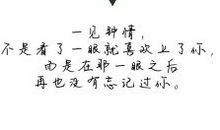 一见钟情，
不是看了一眼就喜欢上了你，
而是在那一眼之后
再也没有忘记过你。